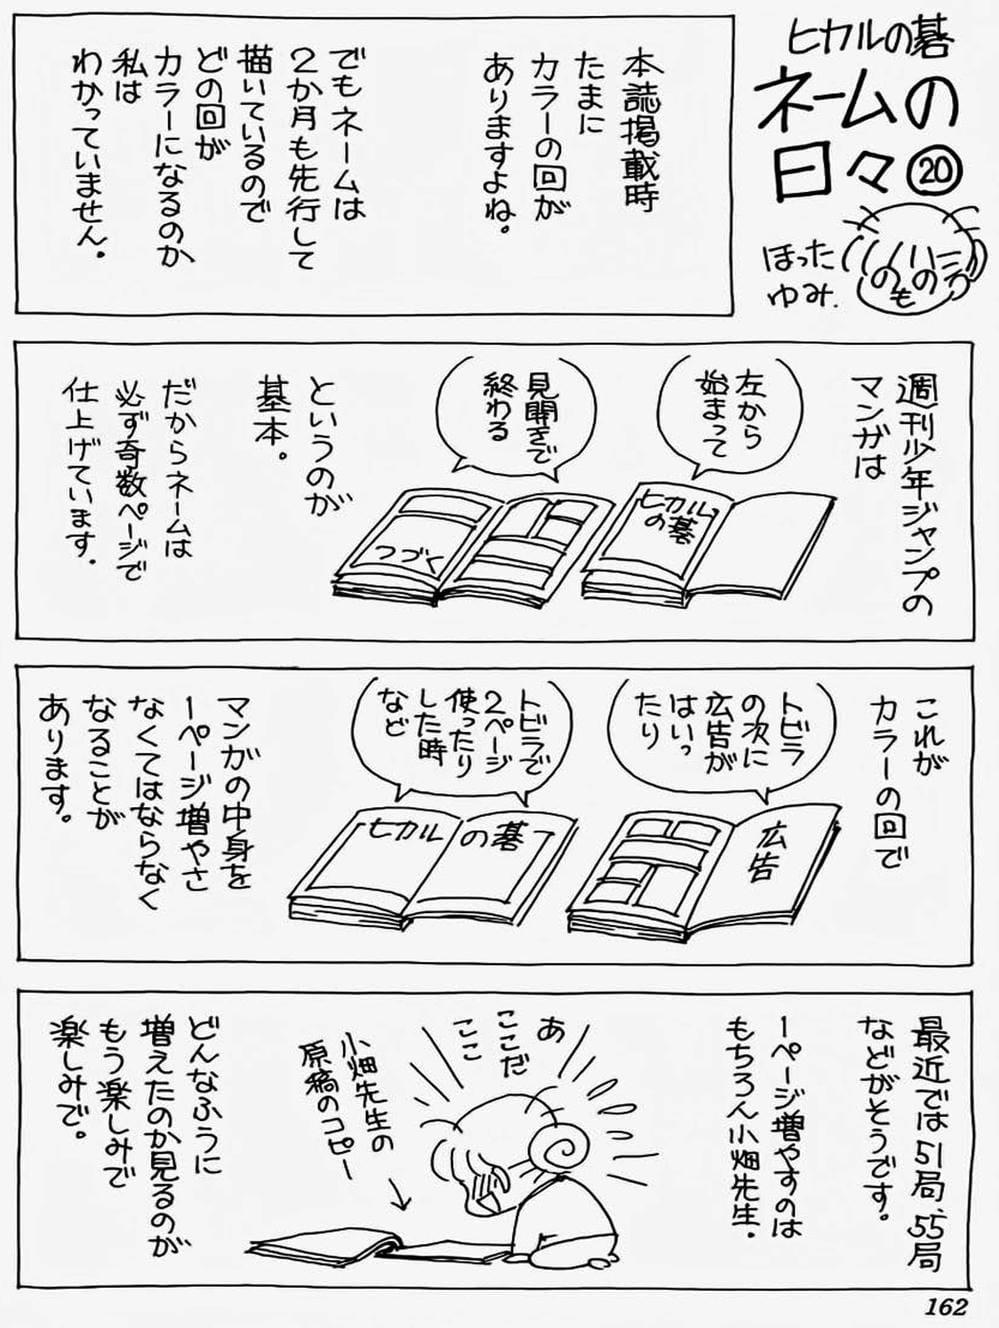 ヒカルの碁
ネームの
日々⑳
ほった
ゆみ.
のもの
本誌掲載時
たまに
カラーの回が
ありますよね。
でもネームは
2か月も先行して
描いているので
どの回が
カラーになるのか
私は
わかっていません。
週刊少年ジャンプの
マンガは
左から
始まって
ヒカル
の碁
見開きで
終わる
つづく
というのが
基本。
だからネームは
必ず奇数ページで
仕上げています.
これが
カラーの回で
トビラ
の次に
広告が
はいっ
たり
広告
トビラで
2ページ
使ったり
した時
など
ヒカルの碁
マンガの中身を
1ページ増やさ
なくてはならなく
なることが
あります。
最近では51局、55局
などがそうです。
1ページ増やすのは
もちろん小畑先生.
あ
ここだ
ここ
小畑先生の
原稿のコピー
どんなふうに
増えたのか見るのが
もう楽しみで
楽しみで。
162